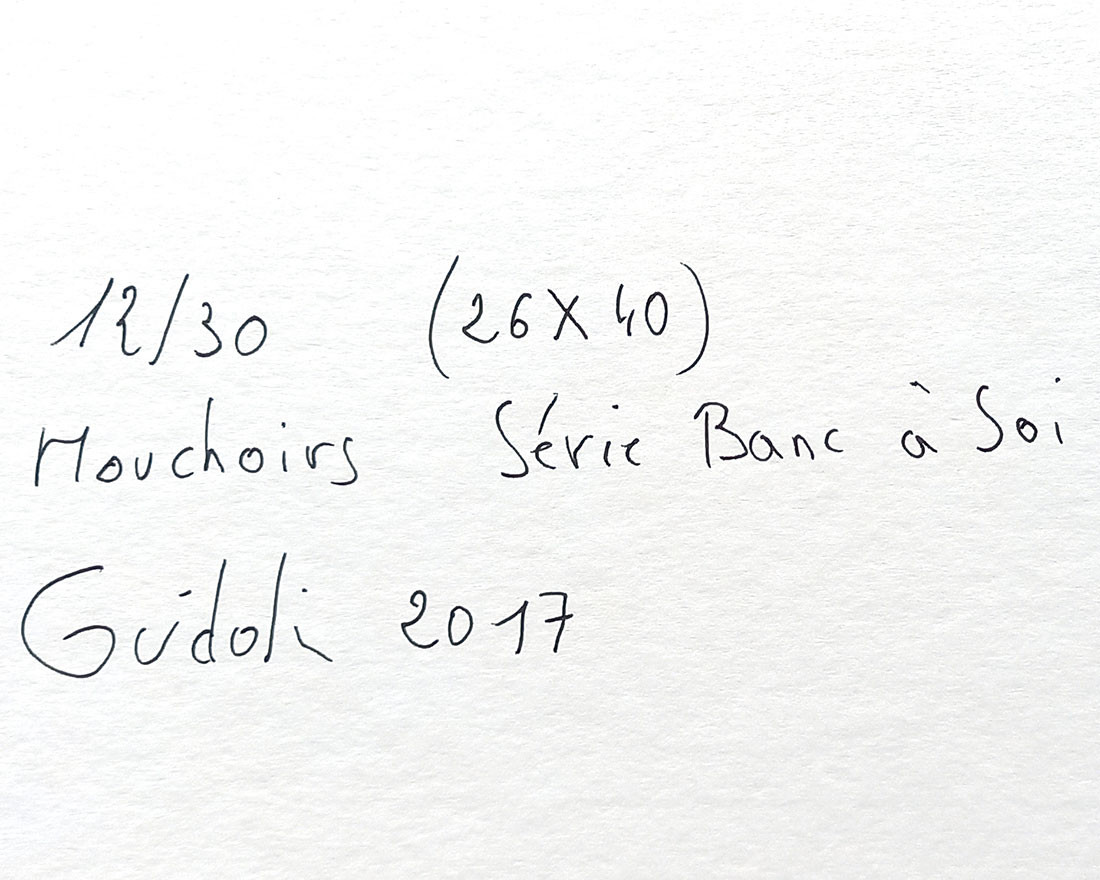 12/30 (26X40)
Mouchoirs Série Banc à Soi
Guidoli 2017